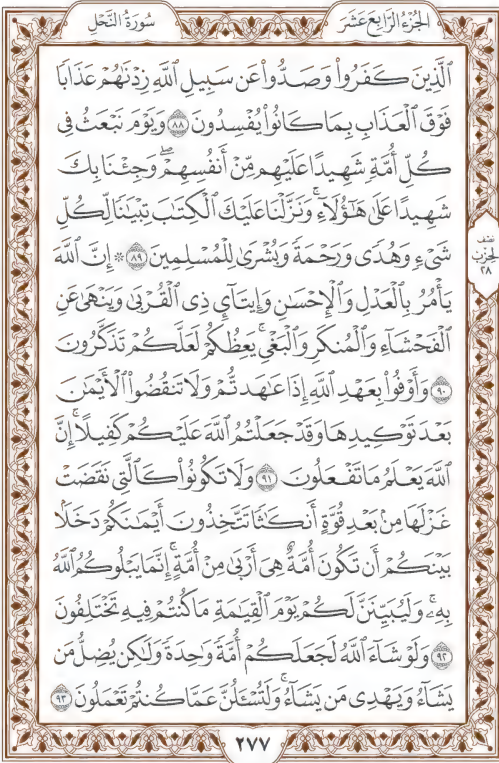 سُورَةُ النَّحْلِ
الجُزْءُ الرَّابِعَ عَشَرَ
ٱلَّذِينَ كَفَرُوا۟ وَصَدُّوا۟ عَن سَبِيلِ ٱللَّهِ زِدْنَـٰهُمْ عَذَابًا
فَوْقَ ٱلْعَذَابِ بِمَا كَانُوا۟ يُفْسِدُونَ ٨٨ وَيَوْمَ نَبْعَثُ فِى
كُلِّ أُمَّةٍ شَهِيدًا عَلَيْهِم مِّنْ أَنفُسِهِمْ ۖ وَجِئْنَا بِكَ
شَهِيدًا عَلَىٰ هَـٰٓؤُلَآءِ ۚ وَنَزَّلْنَا عَلَيْكَ ٱلْكِتَـٰبَ تِبْيَـٰنًا لِّكُلِّ
شَىْءٍ وَهُدًى وَرَحْمَةً وَبُشْرَىٰ لِلْمُسْلِمِينَ ٨٩ ۞ إِنَّ ٱللَّهَ
يَأْمُرُ بِٱلْعَدْلِ وَٱلْإِحْسَـٰنِ وَإِيتَآئِ ذِى ٱلْقُرْبَىٰ وَيَنْهَىٰ عَنِ
ٱلْفَحْشَآءِ وَٱلْمُنكَرِ وَٱلْبَغْىِ ۚ يَعِظُكُمْ لَعَلَّكُمْ تَذَكَّرُونَ
٩٠ وَأَوْفُوا۟ بِعَهْدِ ٱللَّهِ إِذَا عَـٰهَدتُّمْ وَلَا تَنقُضُوا۟ ٱلْأَيْمَـٰنَ
بَعْدَ تَوْكِيدِهَا وَقَدْ جَعَلْتُمُ ٱللَّهَ عَلَيْكُمْ كَفِيلًا ۚ إِنَّ
ٱللَّهَ يَعْلَمُ مَا تَفْعَلُونَ ٩١ وَلَا تَكُونُوا۟ كَٱلَّتِى نَقَضَتْ
غَزْلَهَا مِنۢ بَعْدِ قُوَّةٍ أَنكَـٰثًا تَتَّخِذُونَ أَيْمَـٰنَكُمْ دَخَلًۢا
بَيْنَكُمْ أَن تَكُونَ أُمَّةٌ هِىَ أَرْبَىٰ مِنْ أُمَّةٍ ۚ إِنَّمَا يَبْلُوكُمُ ٱللَّهُ
بِهِۦ ۚ وَلَيُبَيِّنَنَّ لَكُمْ يَوْمَ ٱلْقِيَـٰمَةِ مَا كُنتُمْ فِيهِ تَخْتَلِفُونَ
٩٢ وَلَوْ شَآءَ ٱللَّهُ لَجَعَلَكُمْ أُمَّةً وَٰحِدَةً وَلَـٰكِن يُضِلُّ مَن
يَشَآءُ وَيَهْدِى مَن يَشَآءُ ۚ وَلَتُسْـَٔلُنَّ عَمَّا كُنتُمْ تَعْمَلُونَ ٩٣
نصف
الحزب
٢٨
٢٧٧